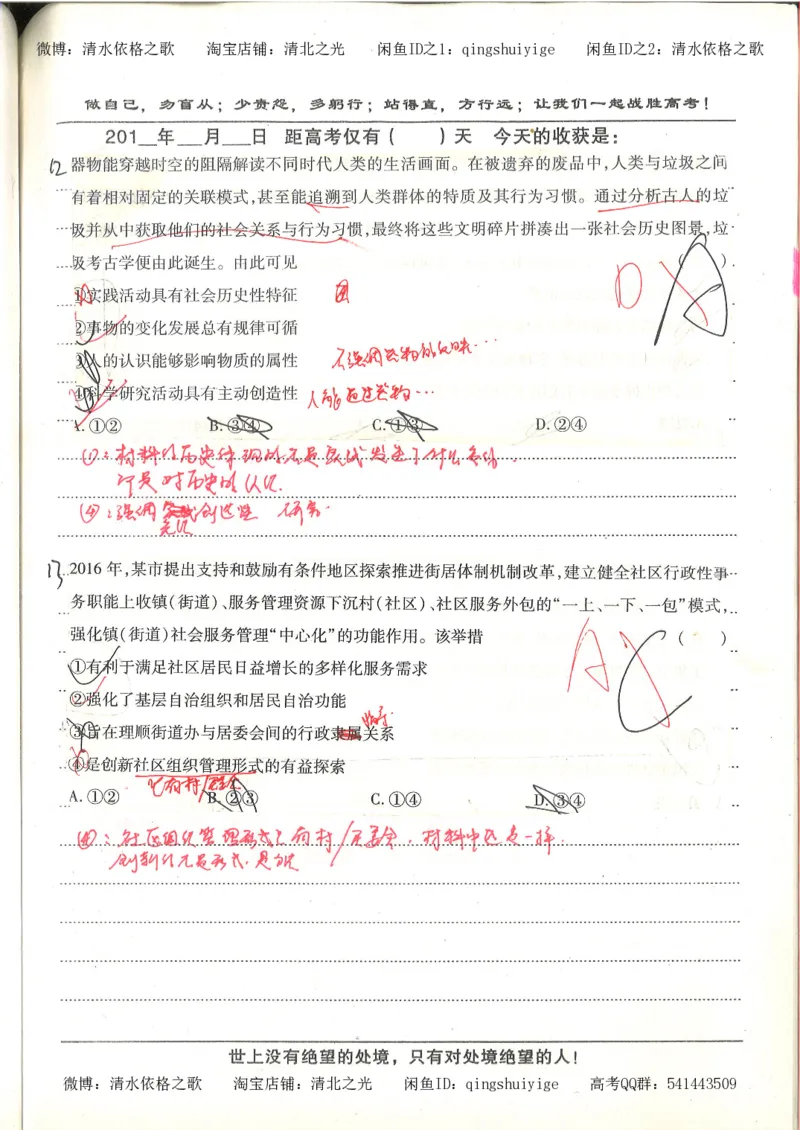 微博：清水依格之歌 淘宝店铺：清北之光 闲鱼ID之1：qingshuiyige 闲鱼ID之2：清水依格之歌
做自己，勿盲从；少责怨，多躬行；站得直，方行远；让我们一起战胜高考！
201__年___月___日 距高考仅有（ ）天 今天的收获是：
12 器物能穿越时空的阻隔解读不同时代人类的生活画面。在被遗弃的废品中，人类与垃圾之间
有着相对固定的关联模式，甚至能追溯到人类群体的特质及其行为习惯。通过分析古人的垃
圾并从中获取他们的社会关系与行为习惯，最终将这些文明碎片拼凑出一张社会历史图景，垃
圾考古学便由此诞生。由此可见 （ ）
D A
①实践活动具有社会历史性特征
②事物的变化发展总有规律可循
③人的认识能够影响物质的属性
④科学研究活动具有主动创造性 人能通过
A.①② B.③④ C.①③ D.②④
①：材料
对历史的认识.
④：强调 创造性 研究.
13 2016年，某市提出支持和鼓励有条件地区探索推进街居体制机制改革，建立健全社区行政性事
务职能上收镇（街道）、服务管理资源下沉村（社区）、社区服务外包的“一上、一下、一包”模式，
强化镇（街道）社会服务管理“中心化”的功能作用。该举措 （ ）
A C
①有利于满足社区居民日益增长的多样化服务需求
②强化了基层自治组织和居民自治功能
③旨在理顺街道办与居委会间的行政隶属关系
指导
④是创新社区组织管理形式的有益探索
A.①② B.②③ C.①④ D.③④
④：社区组织管理形式 村/居委会，材料中
创新
世上没有绝望的处境，只有对处境绝望的人！
微博：清水依格之歌 淘宝店铺：清北之光 闲鱼ID：qingshuiyige 高考QQ群：541443509